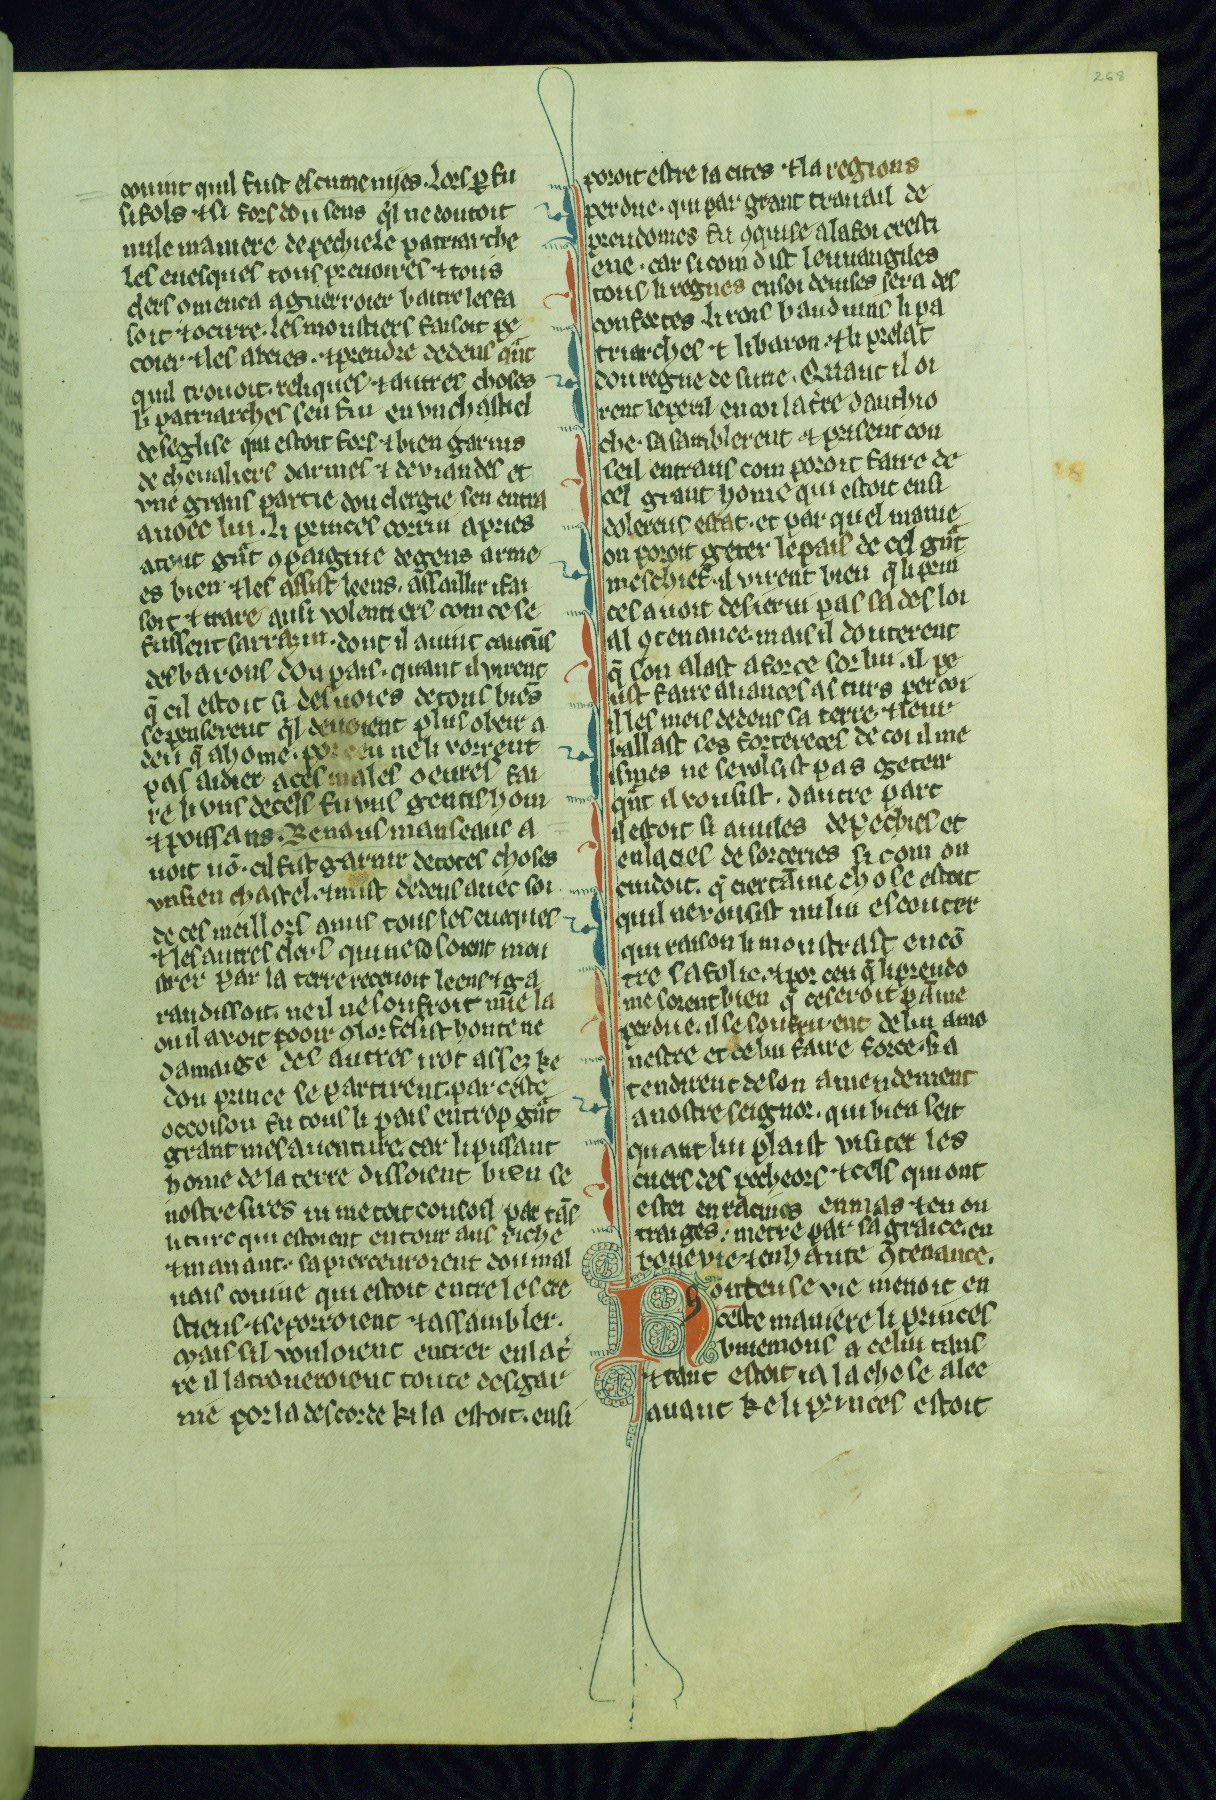 268
couuit quil fust escumenijes. Lors p̱ fu
si fols ⁊ si fors dou sens q̇l ne doutoit
nule maniere de pechie. Le patriarche
Les euesques tous preuoires ⁊ tous
clers omenca a guerroier batre les fa
soit ⁊ ocirre. Les moustiers faisoit pe
coier ⁊ les abeies. ⁊ prendre dedens qñt
quil trouoit. reliques ⁊ autres choses
li patriarches sen fui en vn chastiel
de seglise qui estoit fors ⁊ bien garnis
de cheualiers darmes ⁊ de viandes et
vne grans partie dou clergie sen entra
auoec lui. Li princes corrui apries
atout gñt ꝯpaignie de gens arme
es bien ⁊ les assist leens. assaillir ⁊ fai
soit ⁊ traire ausi volentiers com ce se
fussent sarrazin. dont il auint cautũs
des barons dou pais. quant il virent
q̄ cil estoit si desuoies de tous biẽs
se penserent q̇l deuoient plus obeir a
deu q̄ a home. por ceu ne li vorrent
pas aidier a ces males oeures fai
re li vns de cels fu vns gentis hom
⁊ poissans. Renaus manseaus a
uoit nõ. cil fist garnir de totes choses
vn sien chastel. ⁊ mist dedens auec soi
de ces meillors amis tous les euesques
⁊ les autres clers qui ne soloient mou
strer par la terre receuoit leens ⁊ ga
randissoit. ne il ne soufroit mie la
ou il auoit pooir ꝯlor fesist honte ne
damaige des autres irot assez ke
dou prince se partirent. par ceste
occoison fu tous li pais en trop gñt
grant mesauenture. car li pissant
home de la terre dissoient bien se
nostre sires ni metoit consoil par tãs
li turc qui estoient entour aus riche
⁊ manant. saperceuroient dou mal
uais couine qui estoit entre les cre
stiens. ⁊ se porroient ⁊ assambler.
Mais sil vouloient entrer en la t̃
re il la troueroient toute desgar
nie por la descorde ki la estoit. ensi
poroit estre la cites ⁊ la regions
perdue. qui par grant trauail de
preudomes fu ꝯquise a la foi cresti
ene. car si com dist leuuangiles
tous li regnes en soi deuises sera des
confortes. Li rois bauduins li pa
triarches ⁊ li baron. ⁊ li prelat
dou regne de surie. Quant il oi
rent le peril en coi la t̃re danthio
che. sasamblerent ⁊ prisent con
seil entraus com poroit faire de
cel grant home qui estoit ensi
colereus estat. et par quel manie
on poroit geter le pais de cel gñt
meschief. il virent bien q̇ li prin
ces auoit desierui pas sa desloi
al ꝯtenance. mais il douterent
q̄ son alast a force sor lui. il pe
ust faire aliances as turs per coi
il les meis dedens sa terre. ⁊ leur
ballast ces fortereces de coi il me
ismes ne se volsist pas geteir
qñt il vousist. dautre part
il estoit si auules de pechies et
enlacies de sorceries si com on
cuidoit. q̄ ciertãine chose estoit
quil ne vousist nului escouter
qui raison li moustrast encõ
tre sa folie. ⁊ por ceu q̄ li preudo
me sorent bien q̄ ce seroit painne
perdue. il se soufrirent de lui amo
nestre et de lui faire force. si a
tendirent de son amendement
a nostre seignor. qui bien seit
quant lui plaist visiter les
cuers des pecheors ⁊ cels qui ont
estei enracines ennias ⁊ en ou
traiges. metre par sa graice. en
bone vie. ⁊ en haute ꝯtenance.
Honteuse vie menoit en
ceste maniere li princes
buiemons a celui tans
⁊ tant estoit ia la chose alee
auant ke li princes estoit